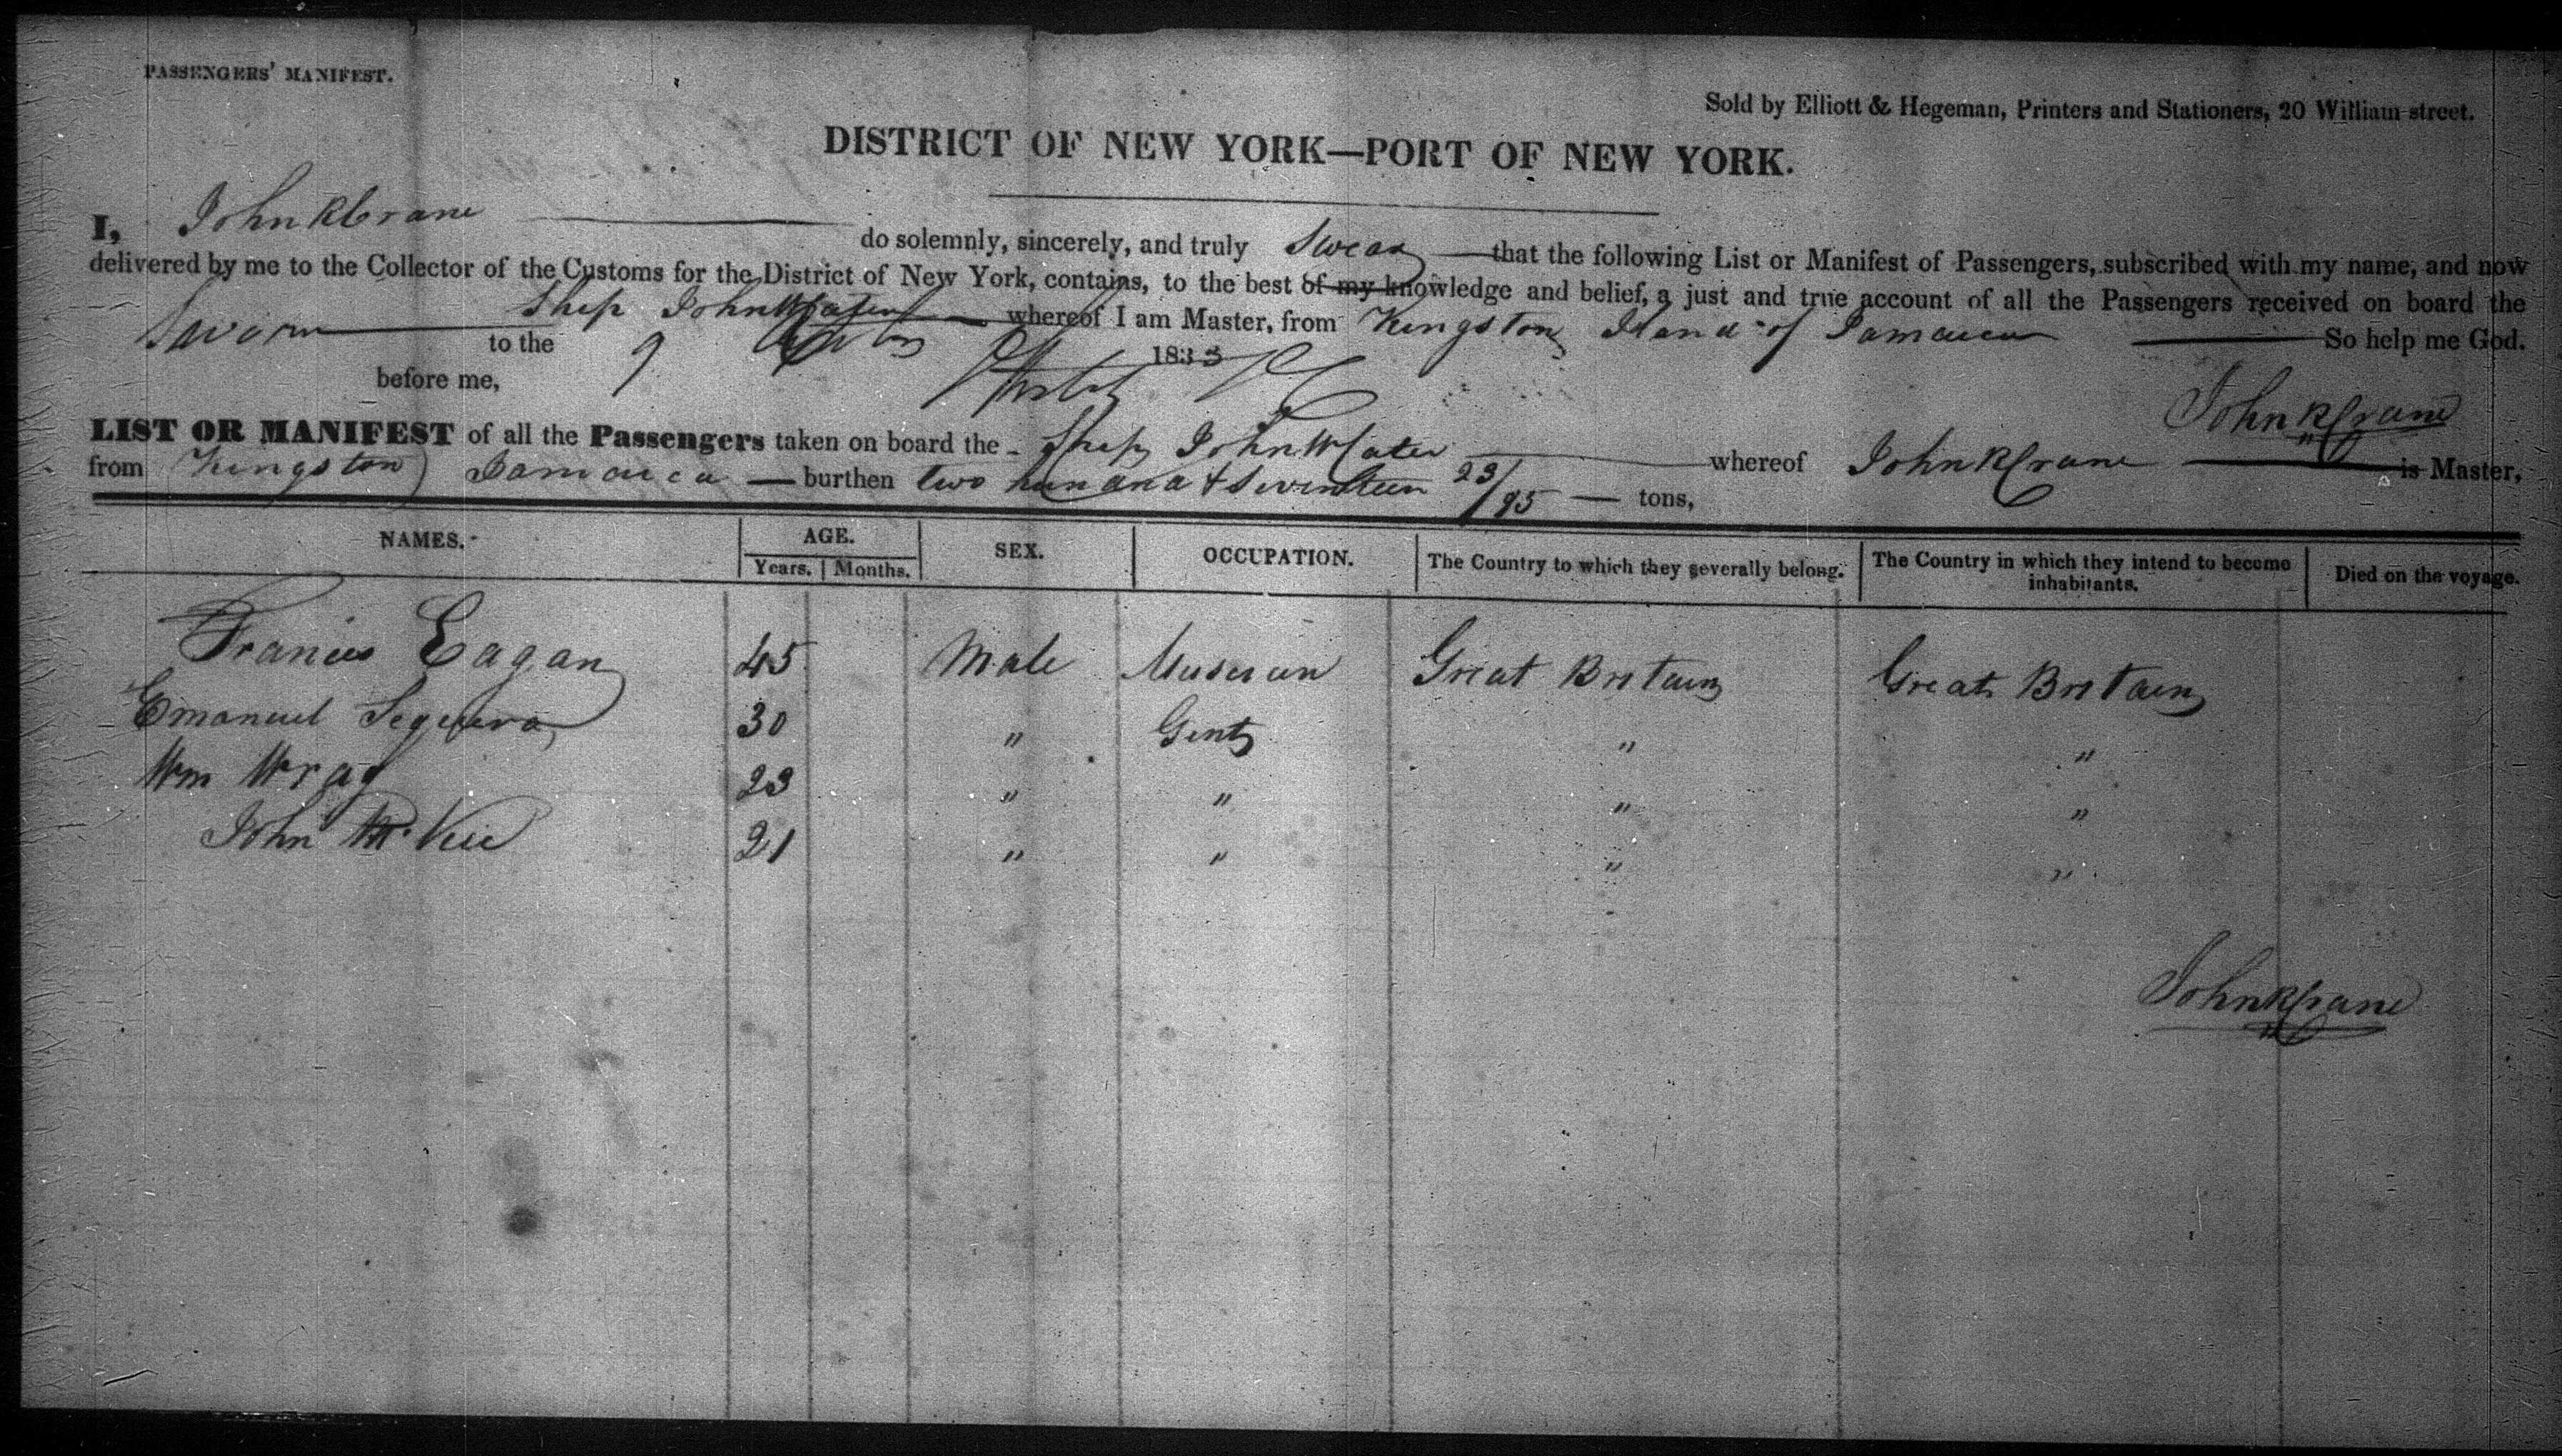 PASSENGERS' MANIFEST.
Sold by Elliott & Hegeman, Printers and Stationers, 20 William-street.
DISTRICT OF NEW YORK—PORT OF NEW YORK.
I, John R Crane do solemnly, sincerely, and truly Swear that the following List or Manifest of Passengers, subscribed with my name, and now
delivered by me to the Collector of the Customs for the District of New York, contains, to the best of my knowledge and belief, a just and true account of all the Passengers received on board the
Ship John W Cater whereof I am Master, from Kingston Iland of Jamaica So help me God.
Sworn to the 9 1833
before me,
John R Crane
LIST OR MANIFEST of all the Passengers taken on board the Ship John W Cater whereof John R Crane is Master,
from Kingston Jamaica — burthen two hundred & Seventeen 23/95 — tons,
NAMES. AGE. SEX. OCCUPATION. The Country to which they severally belong. The Country in which they intend to become inhabitants. Died on the voyage.
Years. Months.
Francis Eagan 45 Male Musician Great Britain Great Britain
Emanuel Sequera 30 " Gent " "
Wm Wray 23 " " " "
John 21 " " " "
John R Crane